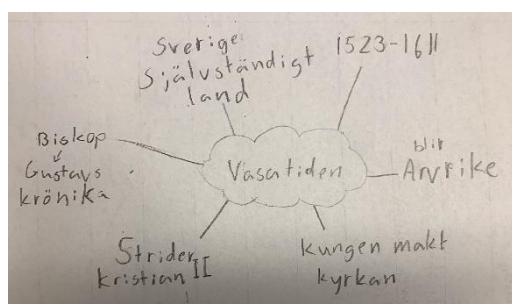 Sverige
Självständigt
land
1523-1611
Biskop
Gustavs
krönika
Vasatiden
blir
Arvrike
Strider
kristian II
kungen makt
kyrkan